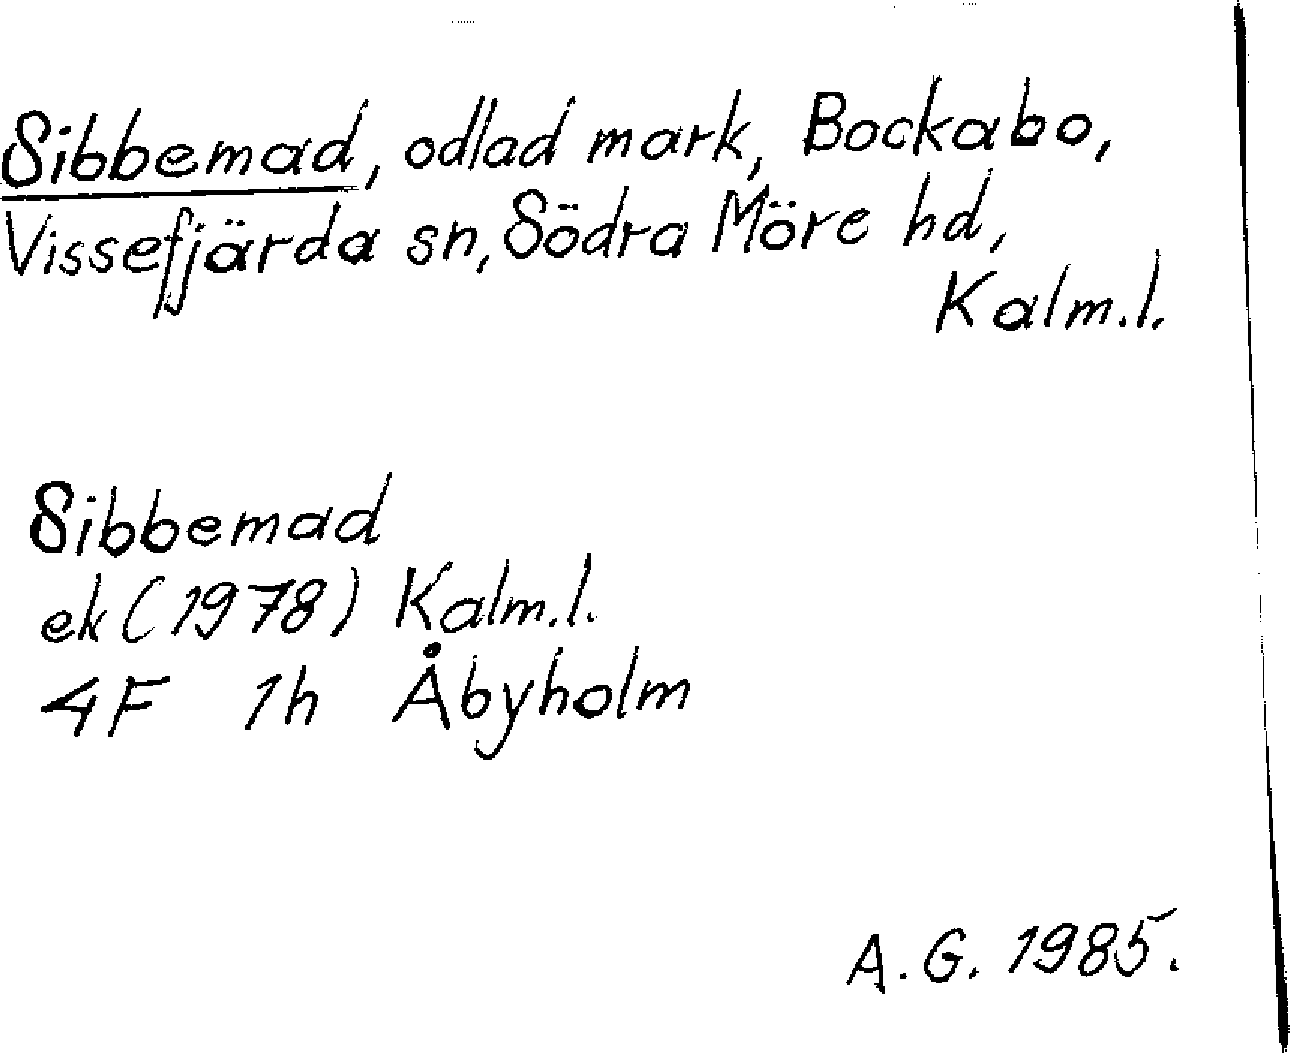 Sibbemad, odlad mark, Bockabo,
Vissefjärda sn, Södra Möre hd,
Kalm.l.
Sibbemad
ek (1978) Kalm.l.
4F 1h Åbyholm
A.G. 1985.